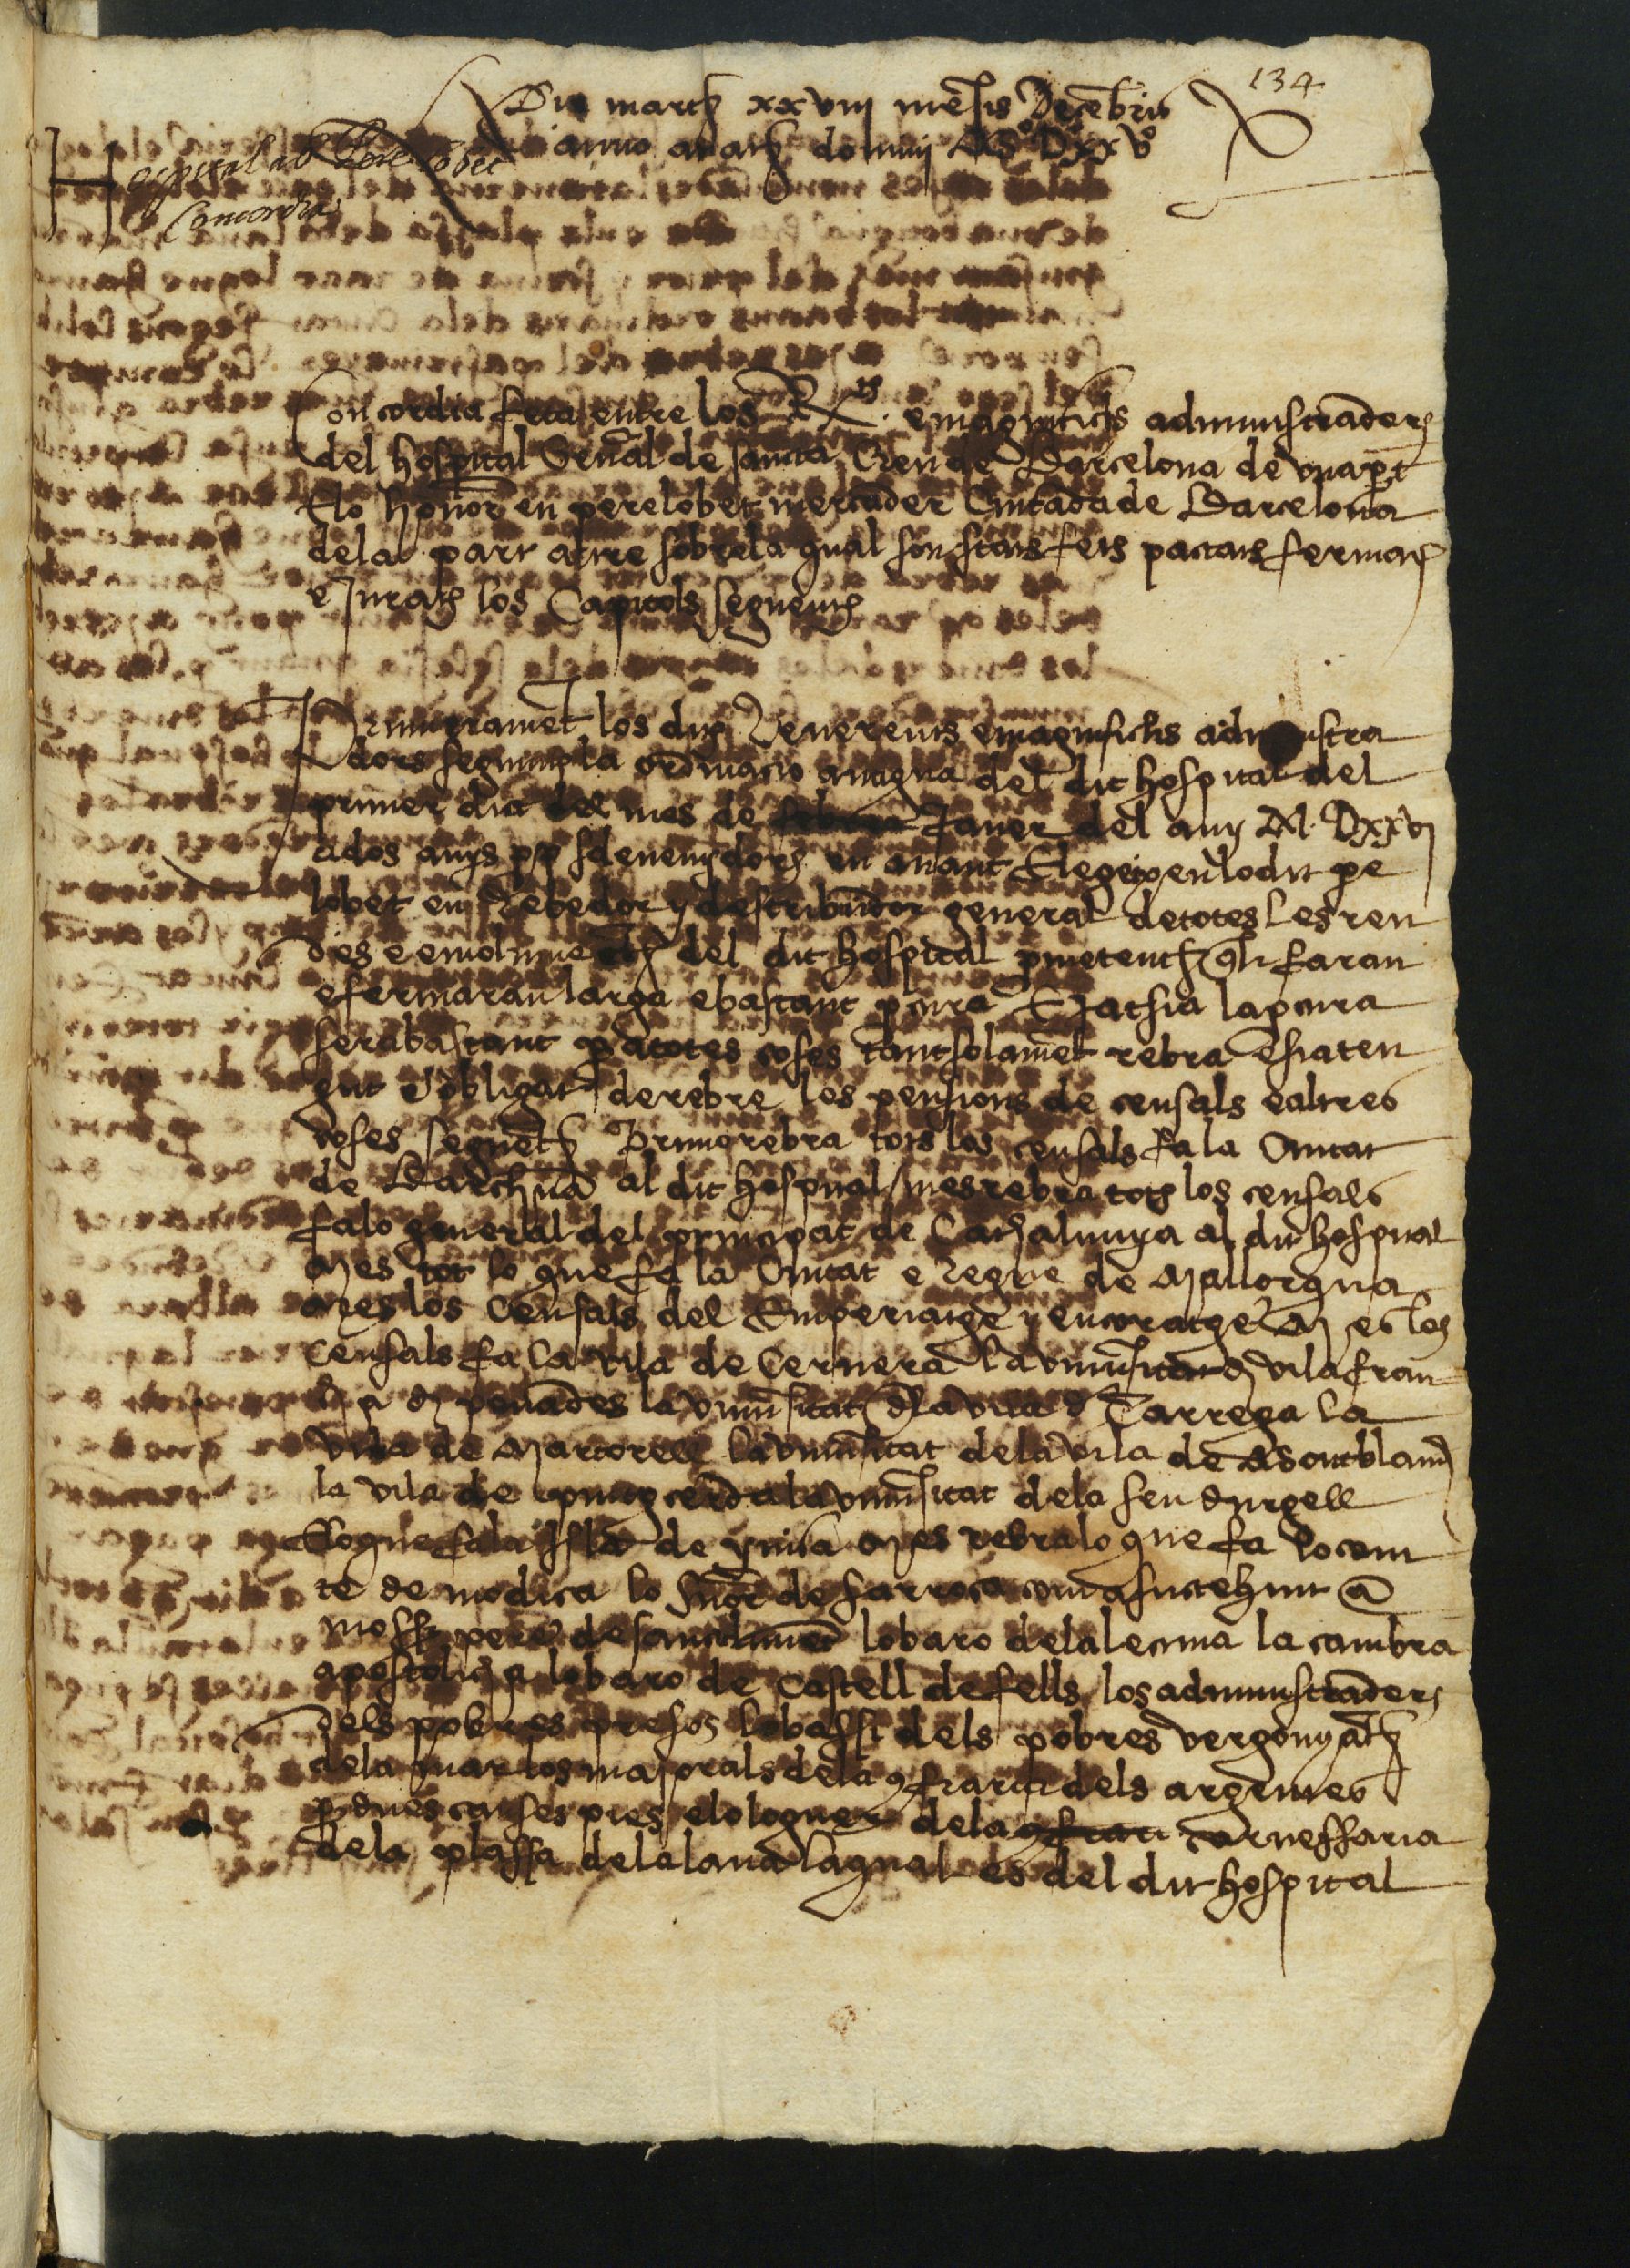 134
Die martis xxviiij mēsis Decēbris
anno a natẽ domini M°D°xxv°
Hospital ab Pere lobet
Concordia
Concordia feta entre los R.ts e magnifichs administradors
del hospital Genāl de sancta Creu de Barcelona de vna pt
E lo honor en pere lobet mercader Ciutada de Barcelona
de la part altre sobre la qual son stats fets pactats fermats
e Jurats los Capitols seguents
Primeramēt los dits Reuerents e magnifichs admistra
dors seguint la ordinacio antigua del dit hospital del
primer dia del mes de febrer Janer del any M.Dxxvj
a dos anys p̄p sdeuenydors en auant Elegeixen lo dit pe
lobet en Rebedor y destribuidor general de totes les ren
des e emoluments del dit hospital prometents q̄ li faran
e fermaran larga e bastant p̄cura E Jatsia la p̄cura
sera bastant p̄ a totes coses tant solamēt rebra e sia ten
gut e obligat de rebre les pensions de censals e altres
coses seguēts Primo rebra tots los censals fa la Ciutat
de Barchna al dit hospital / mes rebra tots los censals
fa lo general del principat de Cathalunya al dit hospital
Mes tot lo que fa la Ciutat e regne de Mallorqua
Mes los Censals del Emperiatge y encoratge Mes los
Censals fa la vila de Ceruera la vniūsitat d̄ vila fran
q̄ a d̄ penades la vniūsitat d̄ la vila d̄ Tarrega la
vila de Martorell la vniūsitat de la vila de Montblanch
la vila de puigcerda la vniūsitat de la seu durgell
Lo que fa la Isla de yuiça Mes rebra lo que fa lo com
te de modica lo Sñor de sarroca
mossē pere de sanctclimēt lo baro de la lacuna la cambra
apostolicha lo baro de Castell de fells los administradors
dels pobres presos lo bassi dels pobres vergonyāts
de la mar los majorals de la cfraria dels argenters
p̄ dues causes pies e lo loguer de la cfrari carnessaria
de la plassa de la lana la qual es del dit hospital